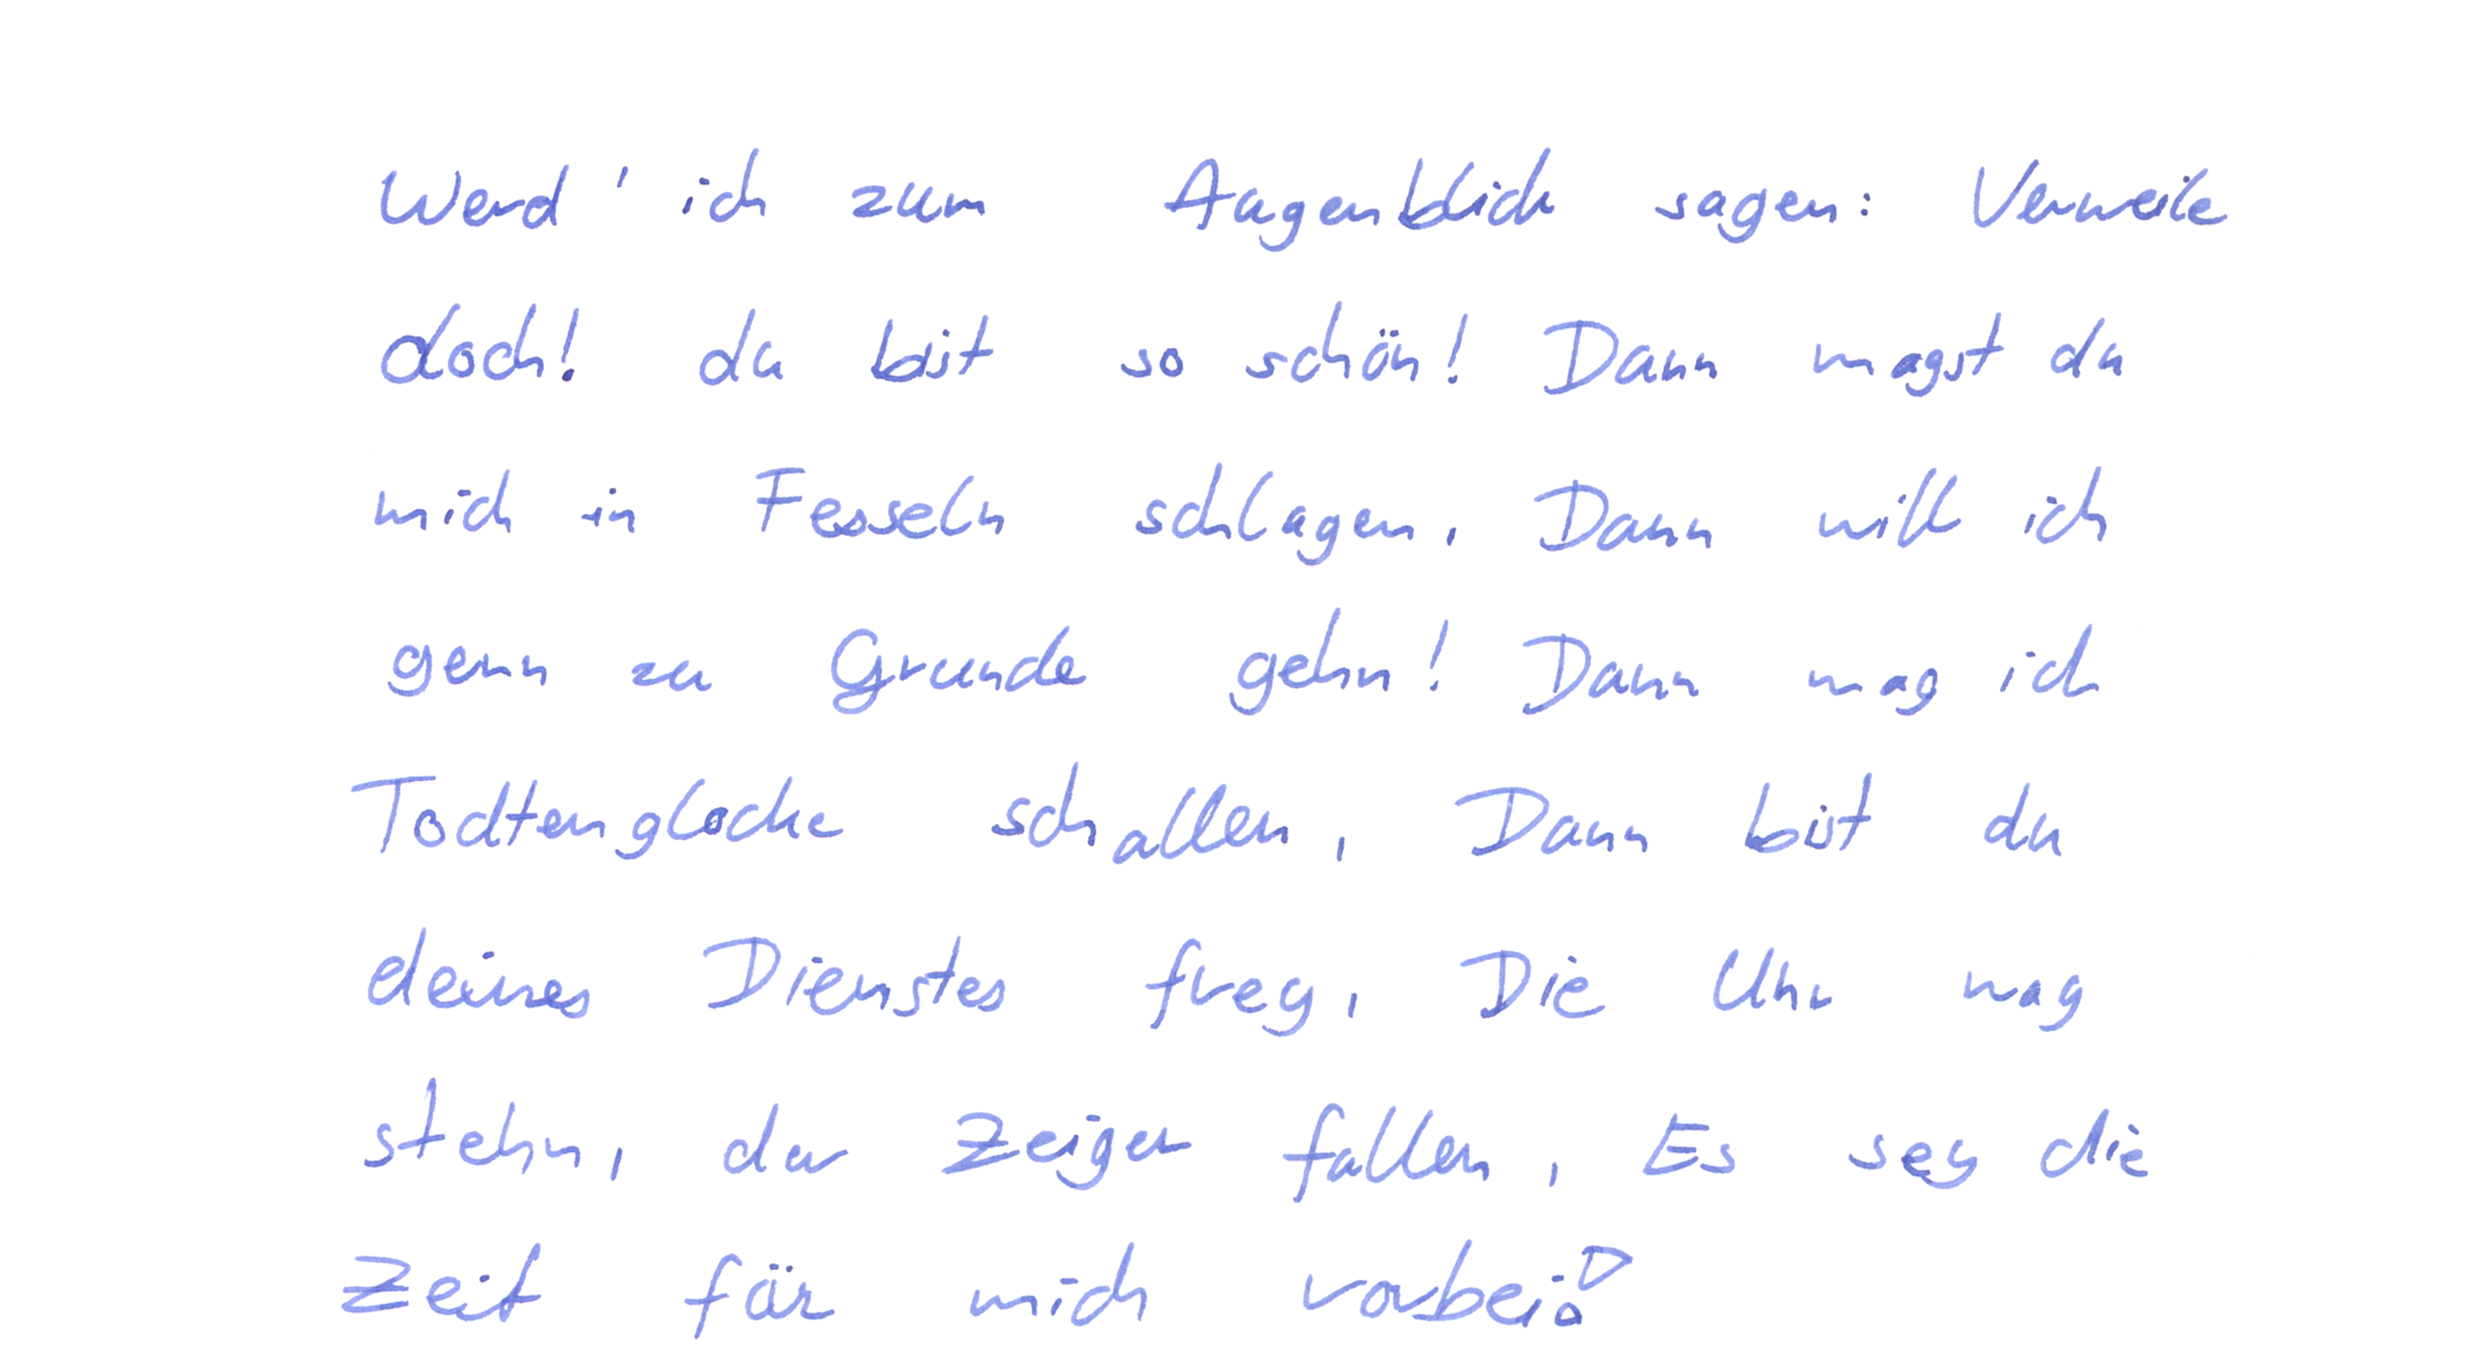 Werd' ich zum Augenblick sagen: Verweile
doch! du bist so schön! Dann magst du
mich in Fesseln schlagen, Dann will ich
gern zu Grunde gehn! Dann mag ich
Todtenglocke schallen, Dann bist du
deines Dienstes frey, Die Uhr mag
stehn, der Zeiger fallen, Es sey die
Zeit für mich vorbei!